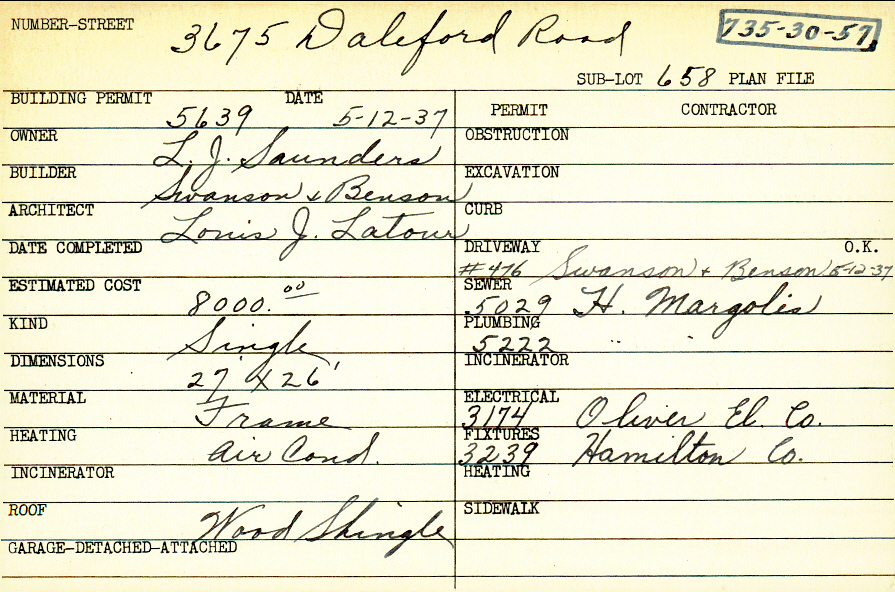 NUMBER-STREET 3675 Daleford Road 735-30-57
SUB-LOT 658 PLAN FILE
BUILDING PERMIT 5639 DATE 5-12-37
OWNER L. J. Saunders
BUILDER Swanson & Benson
ARCHITECT Louis J. Latour
DATE COMPLETED
ESTIMATED COST 8000.00
KIND Single
DIMENSIONS 27' X 26'
MATERIAL Frame
HEATING Air Cond.
INCINERATOR
ROOF Wood Shingle
GARAGE-DETACHED-ATTACHED
PERMIT CONTRACTOR
OBSTRUCTION
EXCAVATION
CURB
DRIVEWAY O.K.
#476 Swanson + Benson 5-12-37
SEWER
5029 H. Margolis
PLUMBING
5222 " "
INCINERATOR
ELECTRICAL
3174 Oliver El. Co.
FIXTURES
3239 Hamilton Co.
HEATING
SIDEWALK